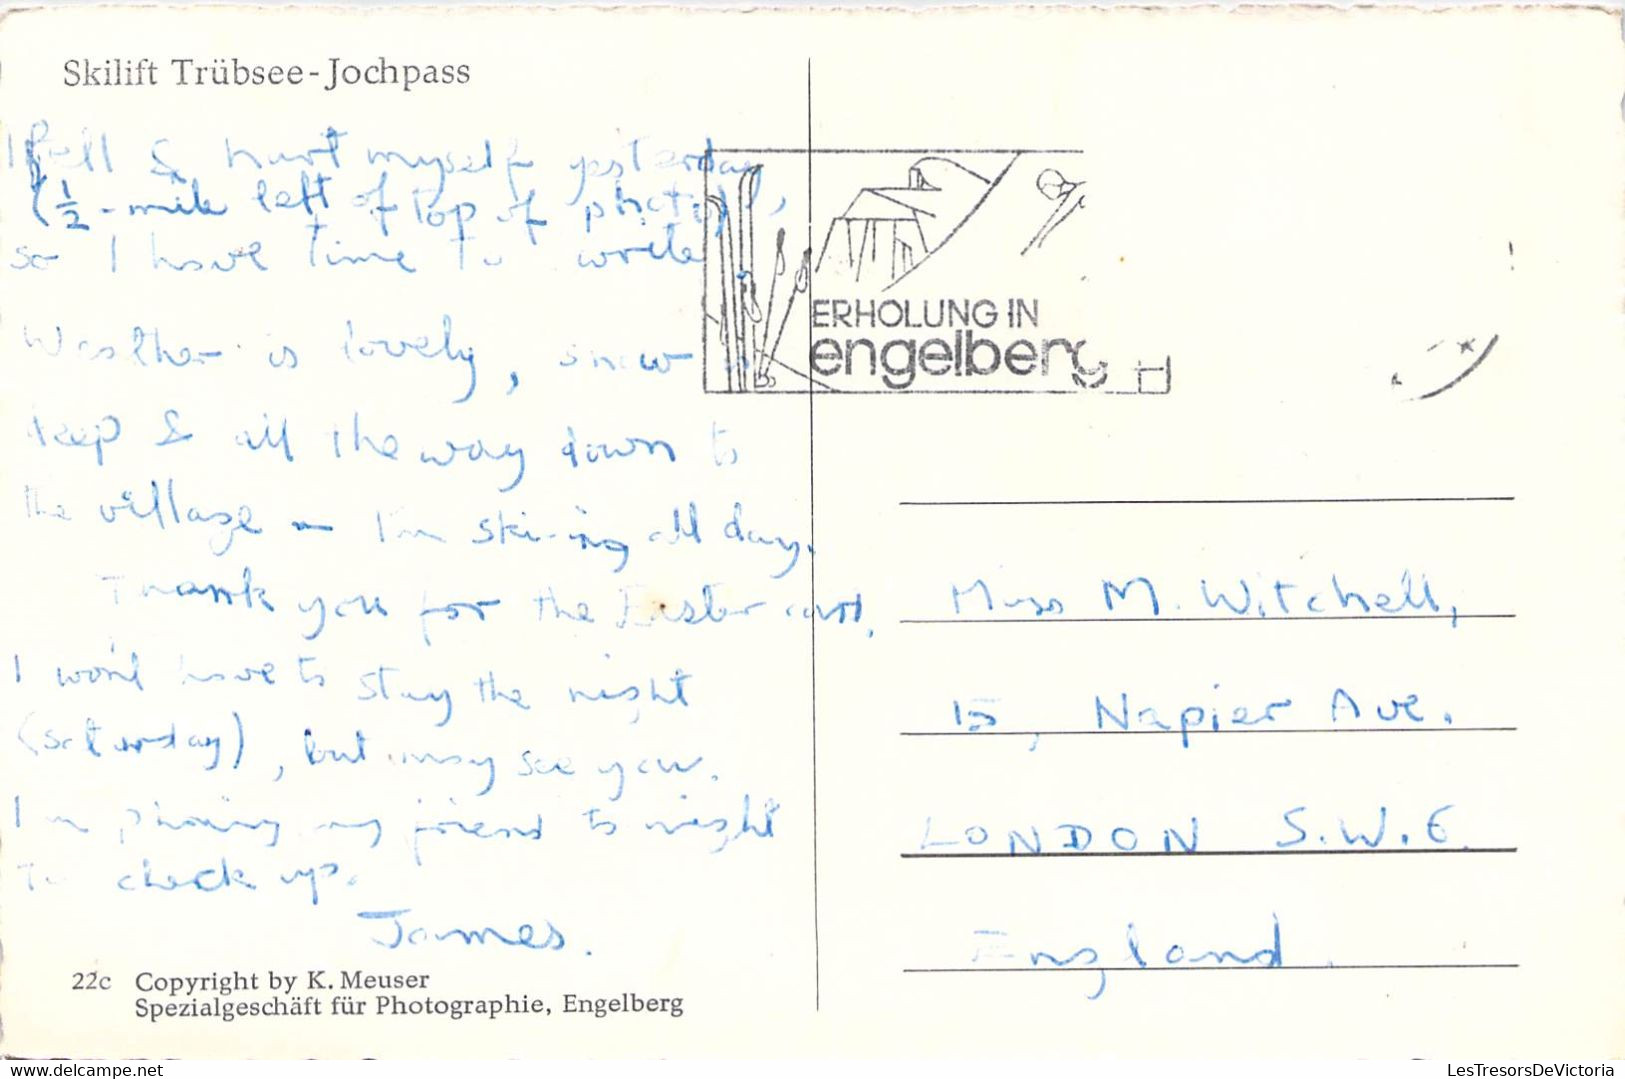 Skilift Trübsee-Jochpass
I fell & hurt myself yesterday
(½-mile left of top of photo),
so I have time to write
Weather is lovely, snow is
deep & all the way down to
the village - I'm ski-ing all day.
Thank you for the Easter card.
I won't have to stay the night
(Saturday), but may see you.
I'm phoning my friend tonight
to check up.
James.
22c Copyright by K. Meuser
Spezialgeschäft für Photographie, Engelberg
ERHOLUNG IN
engelberg
Miss M. Witchell,
15, Napier Ave.
LONDON S.W.6.
England.
LesTresorsDeVictoria